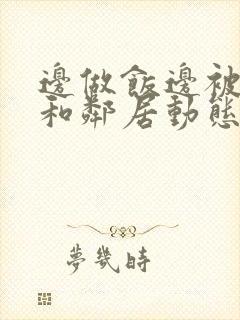 邊做飯邊被
和鄰居動態
夢幾時